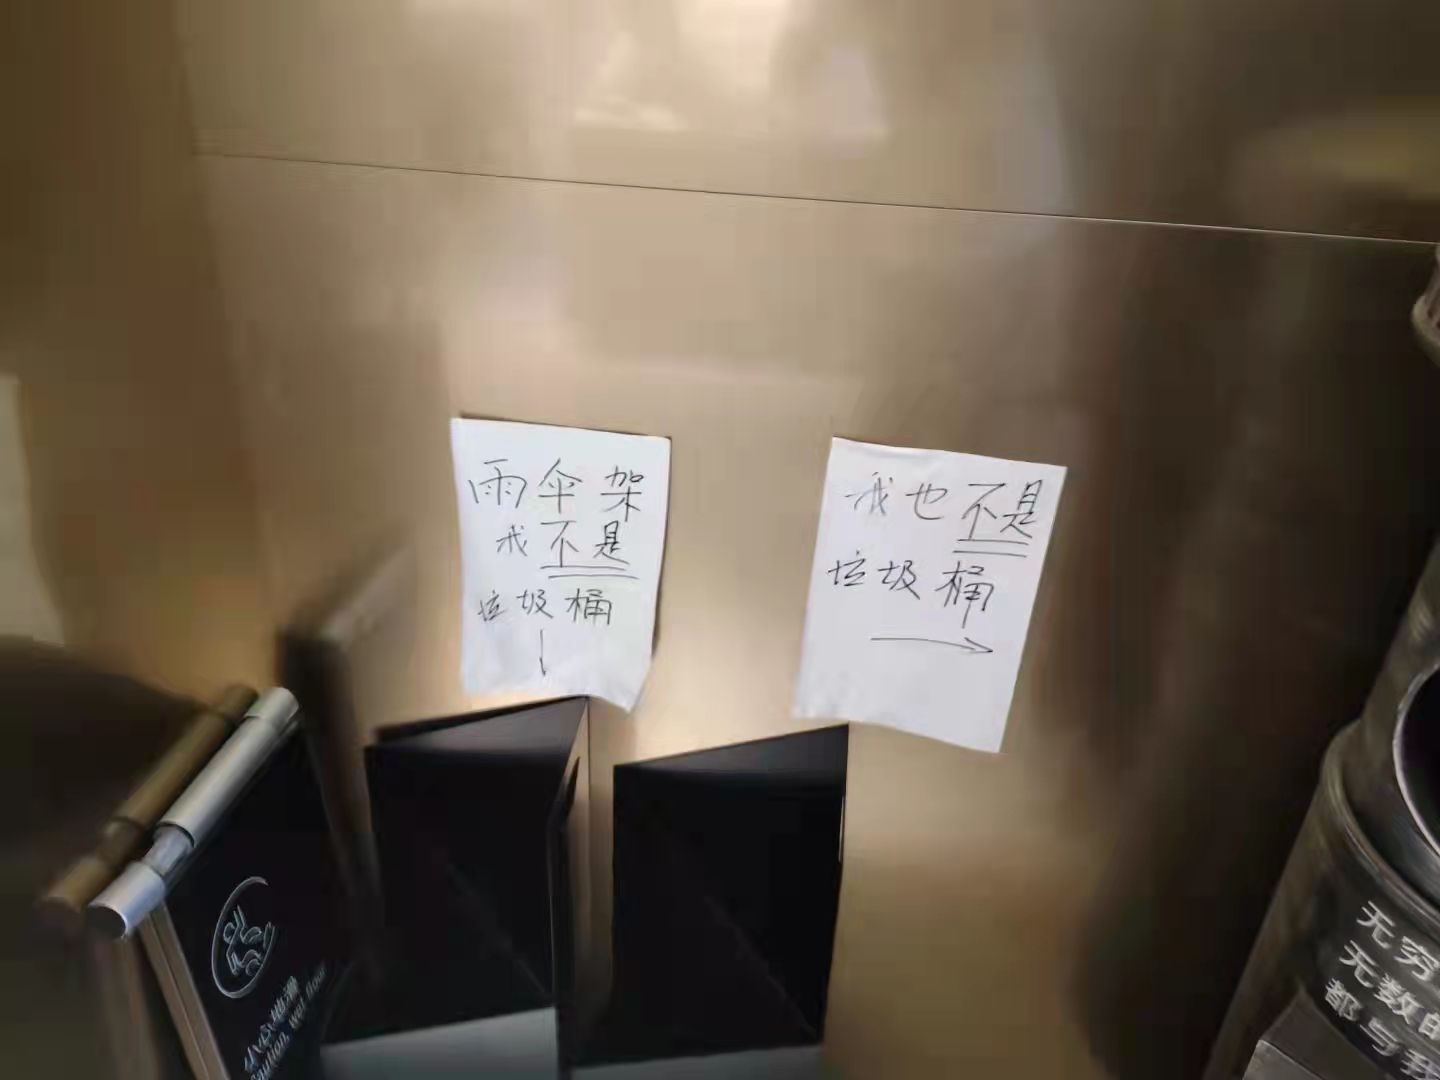 雨伞架
我不是
垃圾桶
我也不是
垃圾桶
小心地滑
Caution, wet floor
无穷
无数的
都与我